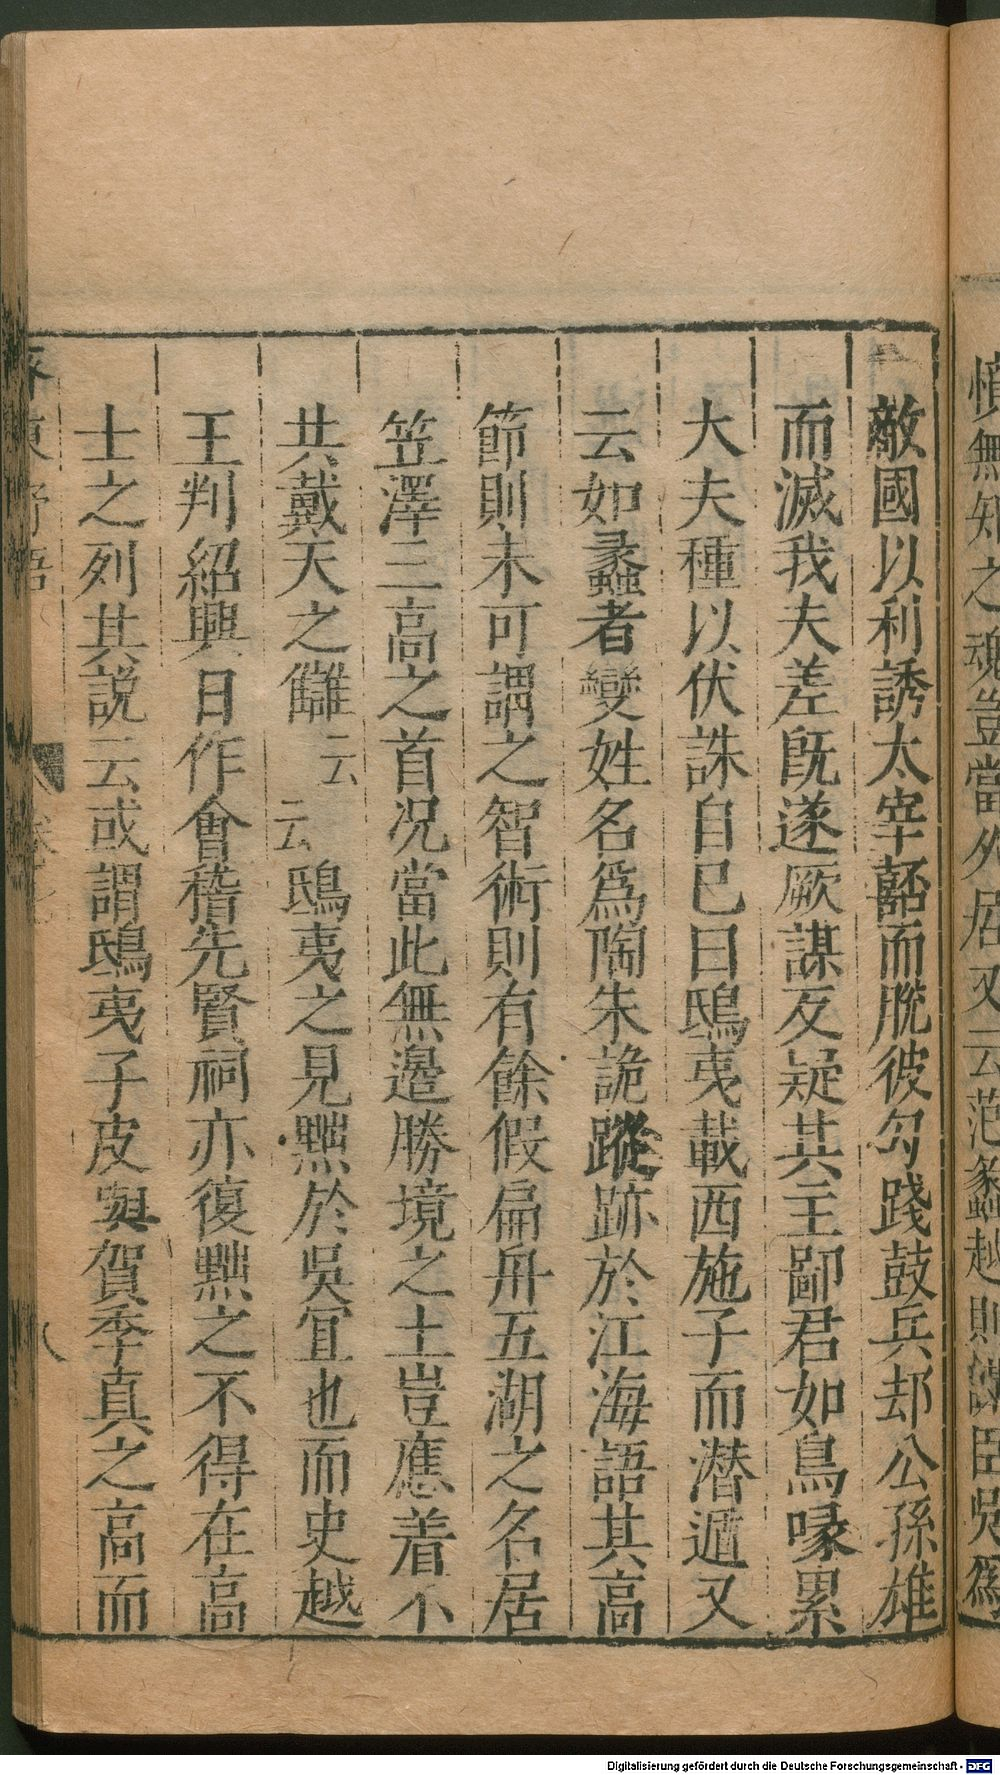 憤無知之魂豈當外居又云范蠡越則謀臣吳爲
敵國以利誘太宰嚭而脫彼勾踐鼓兵却公孫雄
而滅我夫差旣遂厥謀反疑其主鄙君如鳥喙累
大夫種以伏誅自已曰鴟夷載西施子而潛遁又
云如蠡者變姓名爲陶朱詭蹤跡於江海語其高
節則未可謂之智術則有餘假扁舟五湖之名居
笠澤三高之首况當此無邉勝境之土豈應着不
共戴天之讎云云鴟夷之見黜於吳冝也而史越
王判紹興日作會稽先賢祠亦復黜之不得在高
士之列其說云或謂鴟夷子皮與賀季真之高而
東野語
八
Digitalisierung gefördert durch die Deutsche Forschungsgemeinschaft - DFG